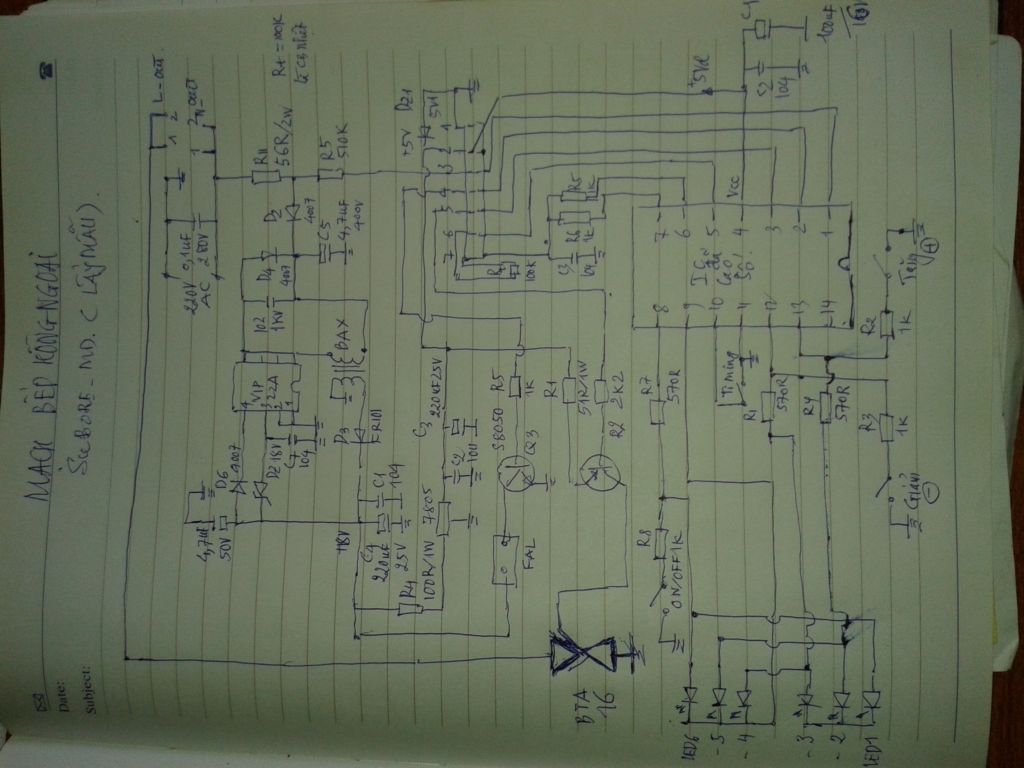 Date:
Subject:
MẠCH BẾP HỒNG NGOẠI
L-out
1 2
N_out
220V
AC
0,1uF
280V
R11
56R/2W
R5
510K
D2
4007
C5
4,7uF
400V
D4
4007
102
1KV
VIP
22A
BAX
D6
4007
4,7uF
50V
DZ 18V
C7
104
D3
FR101
+18V
C4
220uF
25V
C1
104
R4
100R/1W
7805
C2
104
C3
220uF 25V
+5V
DZ1
5V1
7 6 5 4 3 2 1
S8050
Q3
R5
1K
FAL
R1
51R/1W
R2
2K2
BTA
16
100K
C3
104
R6
1K
R5
1K
+5VC
C2
104
C1
100uF
16V
Vcc
7 6 5 4 3 2 1
8 9 10 11 12 13 14
R7
570R
R8
1K
ON/OFF
Timing
R1
570R
R4
570R
R3
1K
Giảm
R2
1K
Tăng
LED6
- 5
- 4
- 3
- 2
LED1